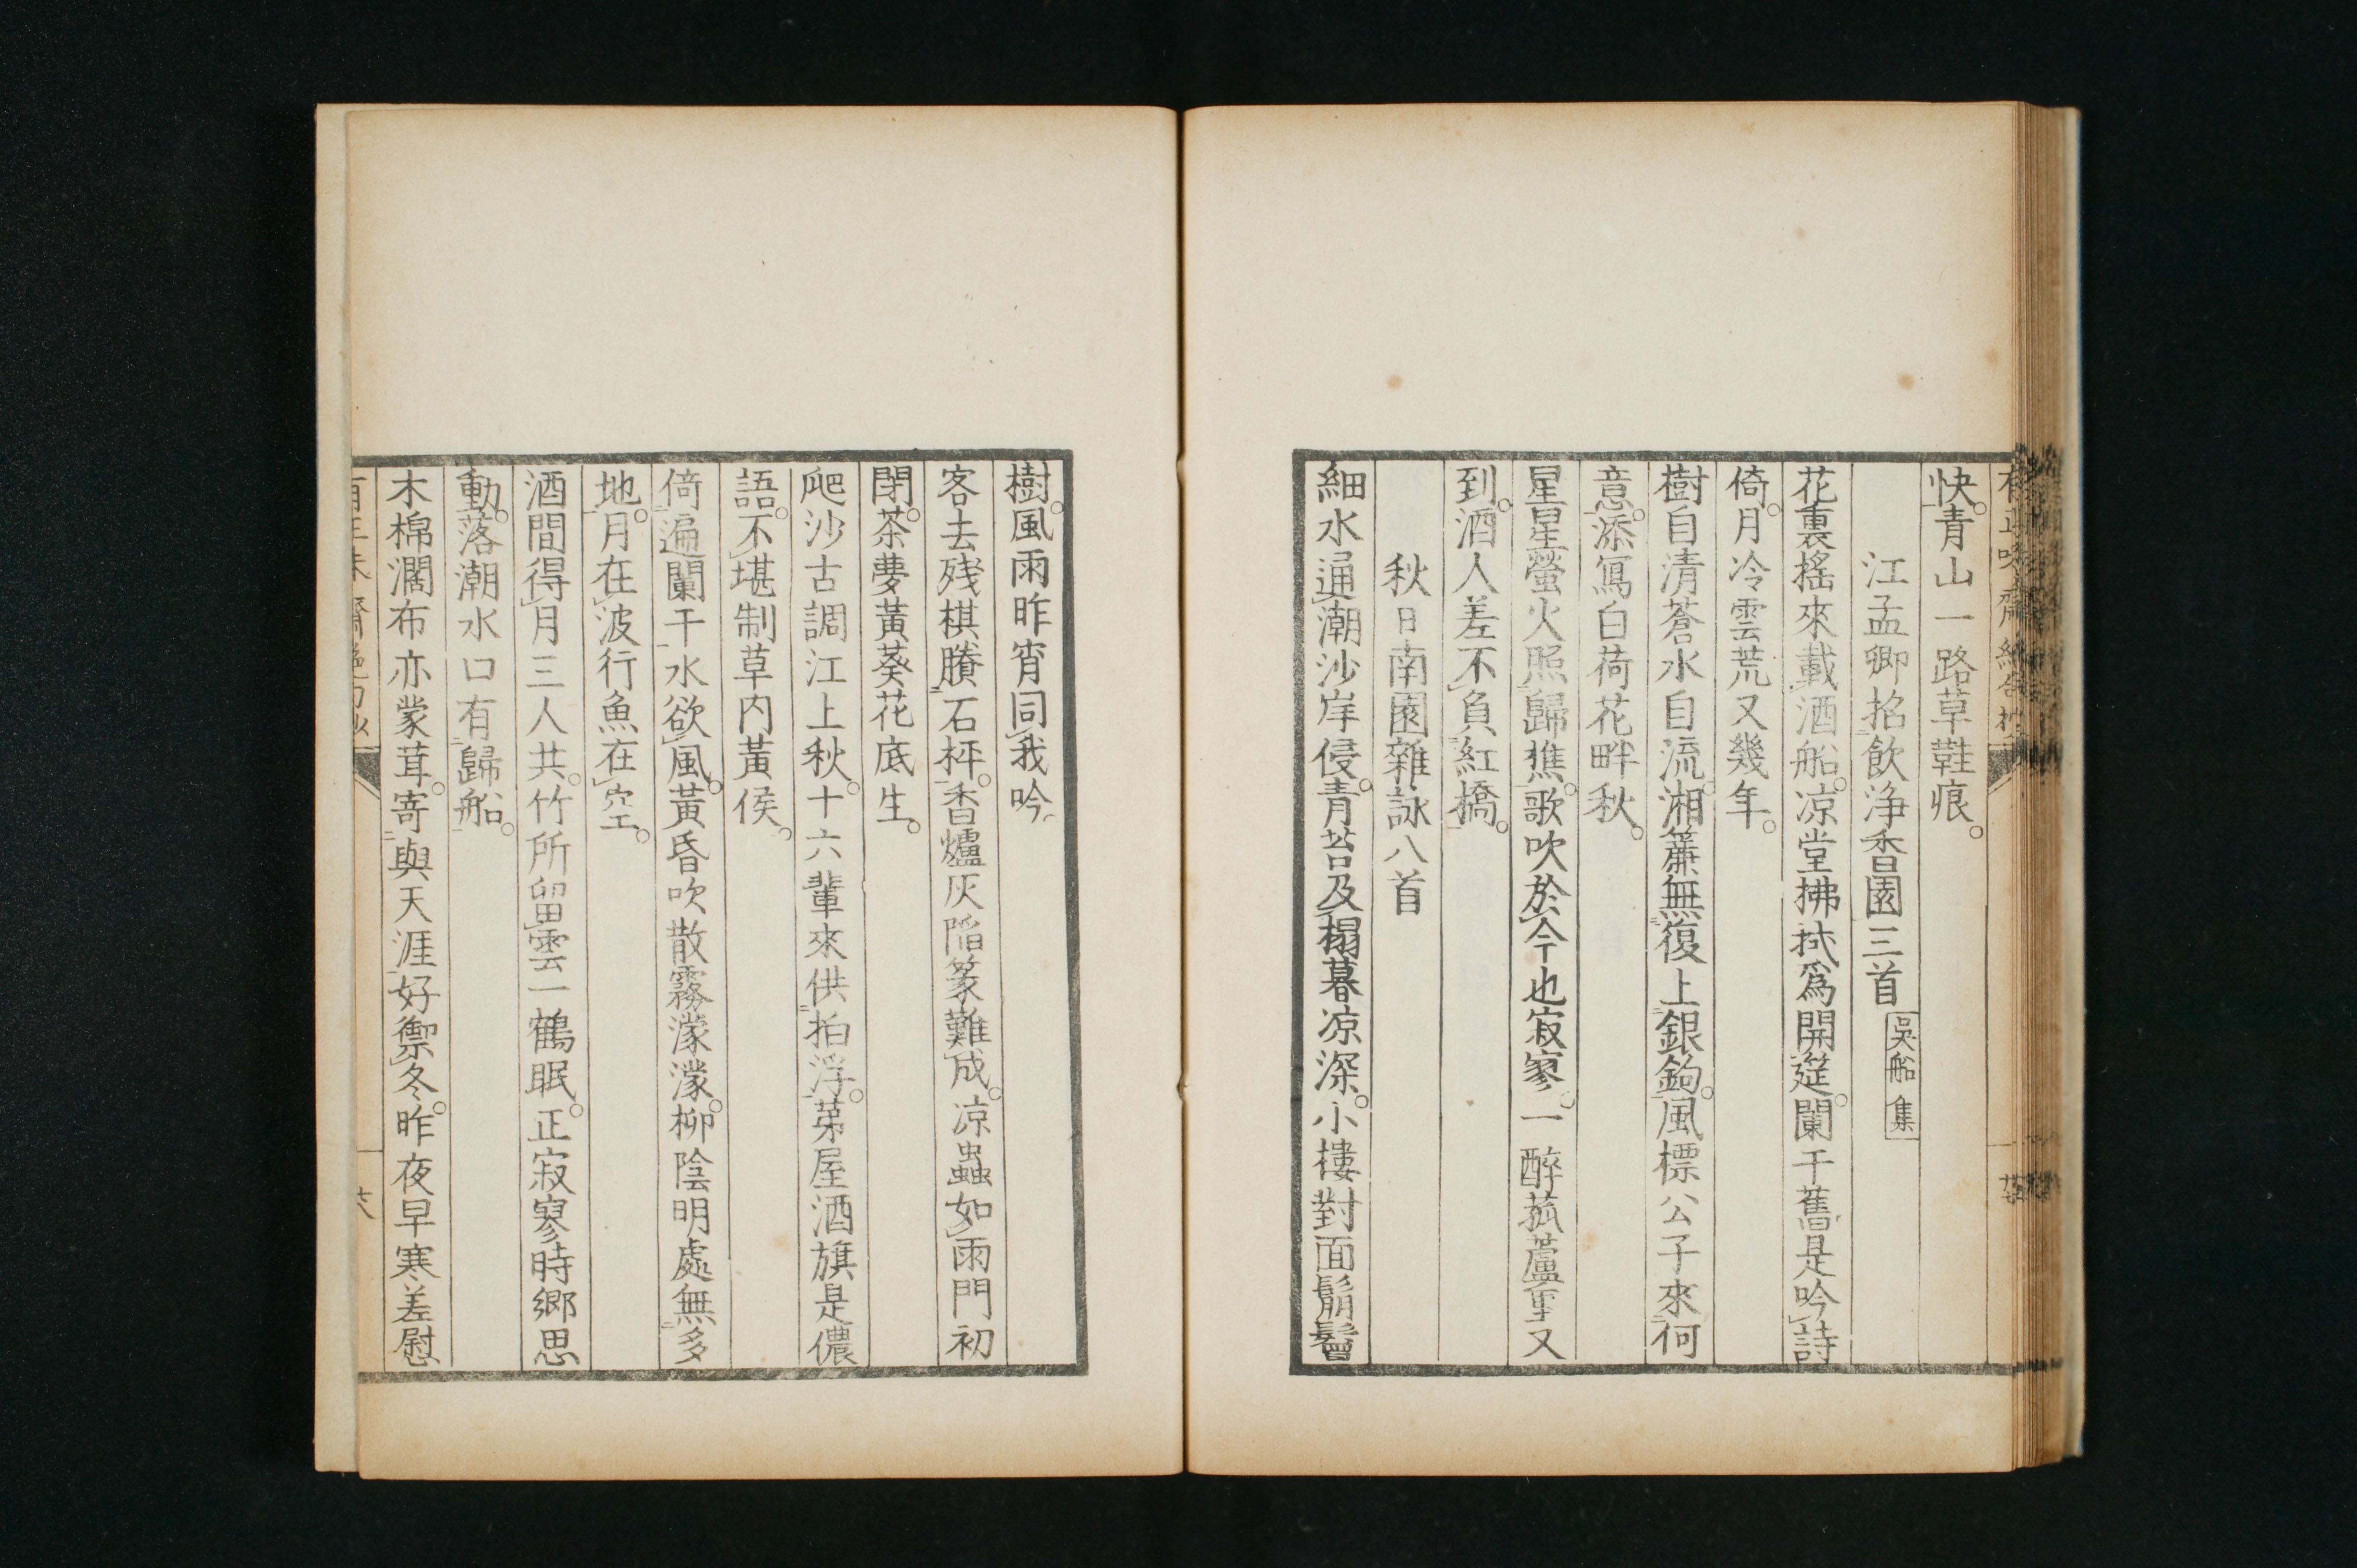 快。青山一路草鞋痕。
江孟卿招飲淨香園三首 吳船集
花裏搖來載酒船。凉堂拂拭爲開筵。闌干舊是吟詩
倚。月冷雲荒又幾年。
樹自清蒼水自流。湘簾無復上銀鉤。風標公子來何
意。添寫白荷花畔秋。
星星螢火照歸樵。歌吹於今也寂寥。一醉菰蘆重又
到。酒人差不負紅橋。
秋日南園雜詠八首
細水通潮沙岸侵。青苔及榻暮凉深。小樓對面鬅鬙
樹。風雨昨宵同我吟
客去殘棋賸石枰。香爐灰陷篆難成。凉蟲如雨門初
閉。茶夢黃葵花底生。
爬沙古調江上秋。十六輩來供拍浮。茅屋酒旗是儂
語。不堪制草內黃侯。
倚遍闌干水欲風。黃昏吹散霧濛濛。柳陰明處無多
地。月在波行魚在空。
酒間得月三人共。竹所留雲一鶴眠。正寂寥時鄉思
動。落潮水口有歸船。
木棉濶布亦蒙茸。寄與天涯好禦冬。昨夜早寒差慰